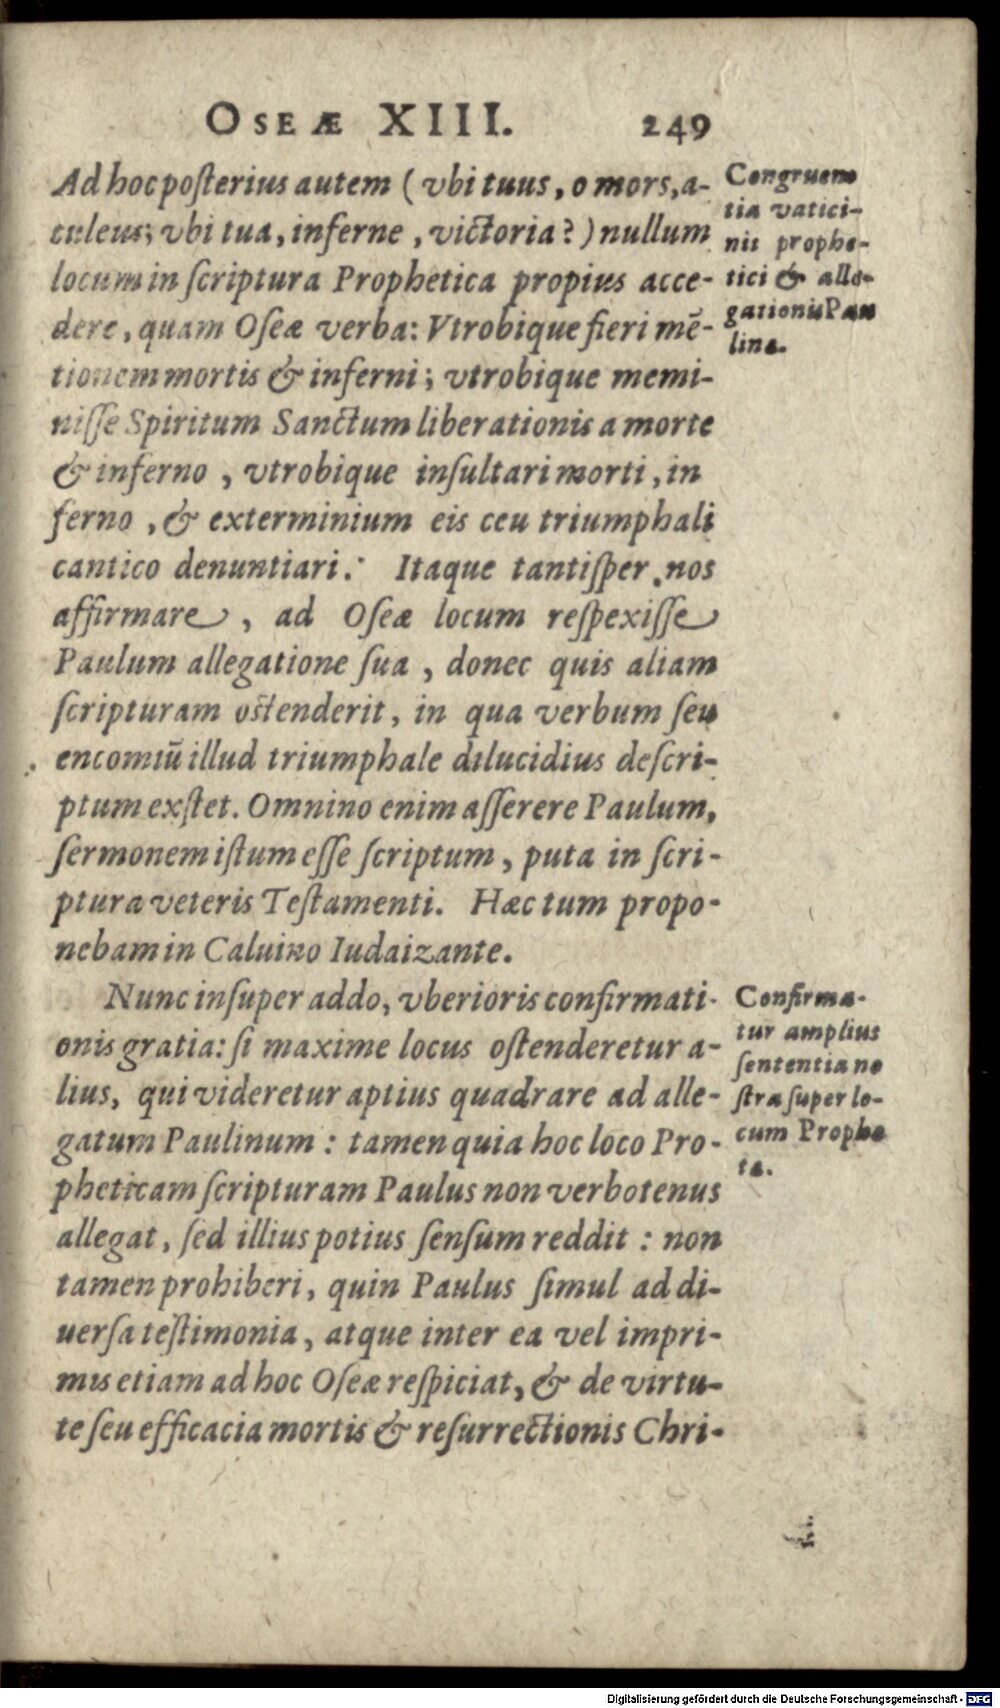 OSEÆ XIII. 249
Ad hoc posterius autem (vbi tuus, o mors, a-
culeus; vbi tua, inferne, victoria?) nullum
locum in scriptura Prophetica propius acce-
dere, quam Oseæ verba: Vtrobique fieri mē-
tionem mortis & inferni; vtrobique memi-
nisse Spiritum Sanctum liberationis a morte
& inferno, vtrobique insultari morti, in
ferno, & exterminium eis ceu triumphali
cantico denuntiari. Itaque tantisper nos
affirmare, ad Oseæ locum respexisse
Paulum allegatione sua, donec quis aliam
scripturam ostenderit, in qua verbum seu
encomiū illud triumphale dilucidius descri-
ptum exstet. Omnino enim asserere Paulum,
sermonem istum esse scriptum, puta in scri-
ptura veteris Testamenti. Hæc tum propo-
nebam in Caluino Iudaizante.
Congruen-
tia vatici-
nii prophe-
tici & alle-
gationis Pau
linæ.
Nunc insuper addo, vberioris confirmati-
onis gratia: si maxime locus ostenderetur a-
lius, qui videretur aptius quadrare ad alle-
gatum Paulinum: tamen quia hoc loco Pro-
pheticam scripturam Paulus non verbotenus
allegat, sed illius potius sensum reddit: non
tamen prohiberi, quin Paulus simul ad di-
uersa testimonia, atque inter ea vel impri-
mis etiam ad hoc Oseæ respiciat, & de virtu-
te seu efficacia mortis & resurrectionis Chri-
Confirma-
tur amplius
sententia no
stra super lo-
cum Prophe
tæ.
Digitalisierung gefördert durch die Deutsche Forschungsgemeinschaft - DFG